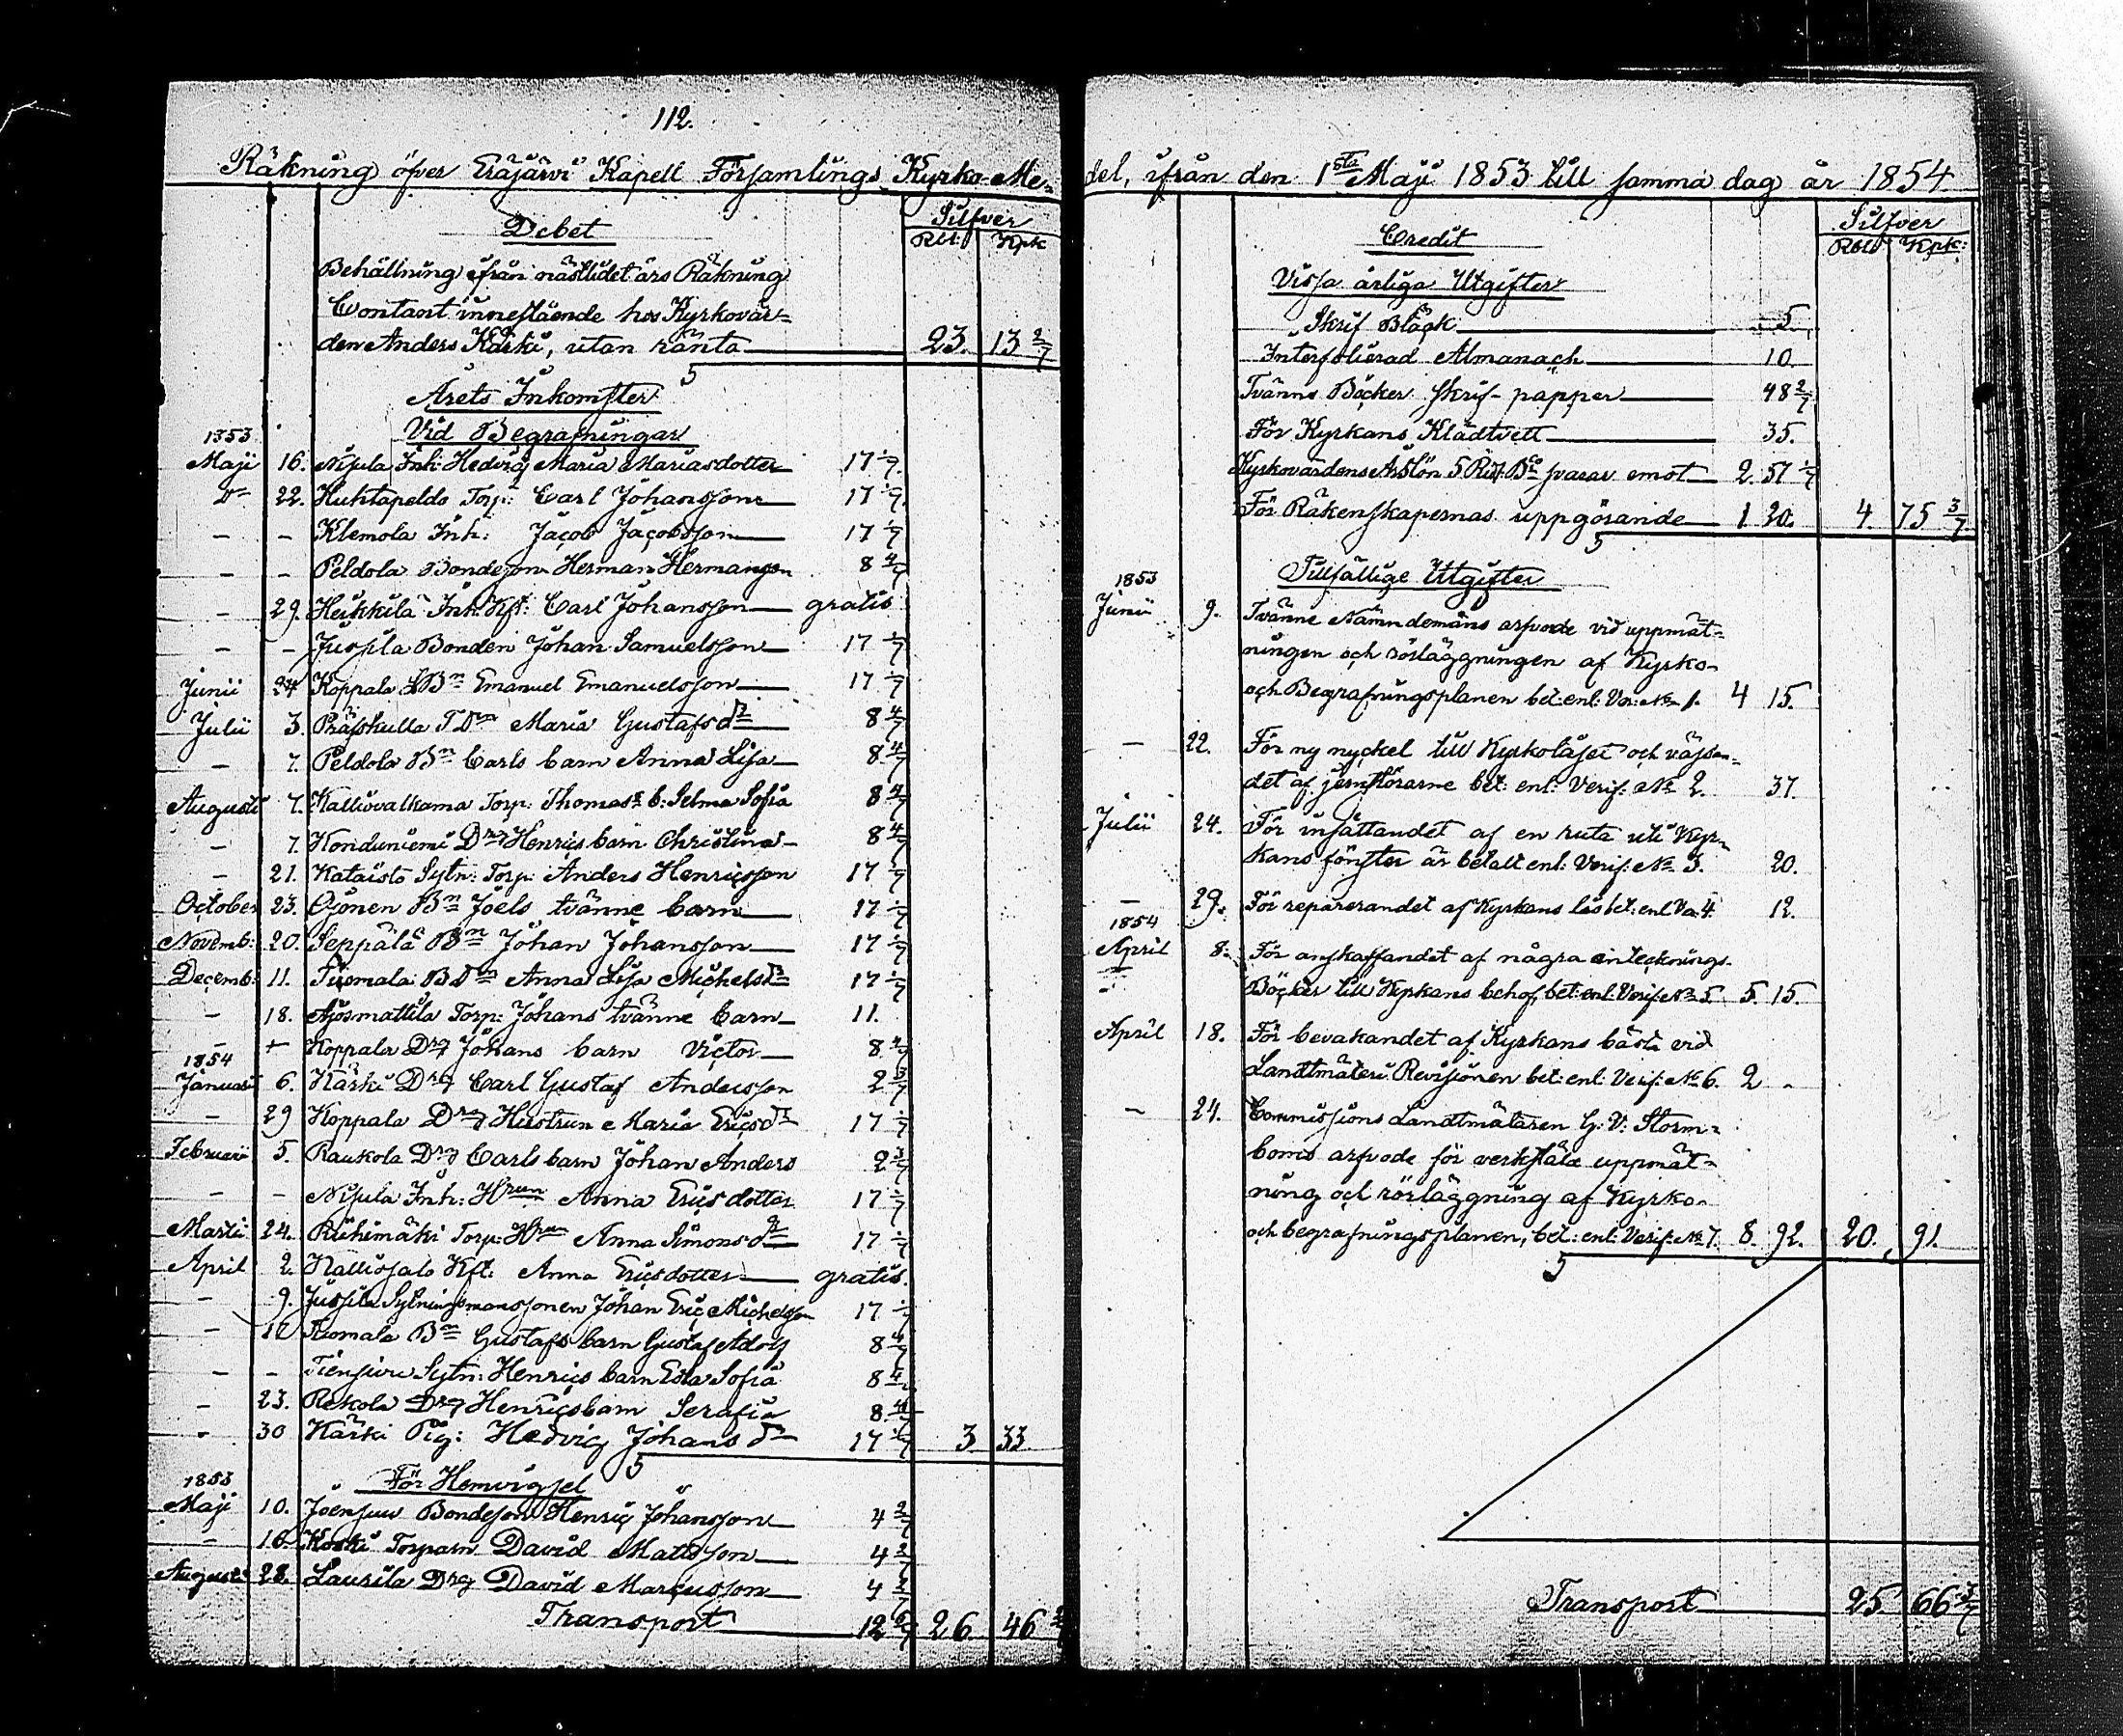 112.
Räkning öfver Eräjärvi Kapell Församlings Kyrko-Me-
Debet
Silfver
Rbl. Kpk
Behållning ifrån nästlidet års Räkning
Contant innestående hos Kyrkovär-
den Anders Kärki, utan ränta 23. 13 2/7
Årets Inkomster
Vid Begrafningar
1853
Maji 16. Nijula Inh: Hedvig Maria Mariasdotter 17 1/7
Do 22. Huhtapeldo Torp: Carl Johansson 17 1/7
- - Klemola Inh: Jacob Jacobsson 17 1/7
- - Peldola Bondeson Herman Hermansson 8 4/7
- 29. Heikkilä Inh: Kst: Carl Johansson gratis
- - Jussila Bonden Johan Samuelsson 17 1/7
Junii 24 Koppala Bn Emanuel Emanuelsson 17 1/7
Julii 3. Maria Gustafsdr 8 4/7
- 7. Peldola Bn Carls barn Anna Lisa 8 4/7
Augusti 7. Kalliovalkama Torp: Thomas b: Selma Sofia 8 4/7
- 7. Konduniemi Drg Henrics barn Christina 8 4/7
- 21. Kataisto Sytn: Torp: Anders Henricsson 17 1/7
October 23. Ojonen Bn Joels tvänne barn 17 1/7
Novemb: 20. Seppälä Bn Johan Johansson 17 1/7
Decemb: 11. Tuomala Anna Lisa Michelsdr 17 1/7
- 18. Ajosmattila Torp: Johans tvänne barn 11.
- + Koppala Drg Johans barn Victor 8 4/7
1854
Januari 6. Kärki Drg Carl Gustaf Andersson 2 3/7
- 29 Koppala Drg Hustrun Maria Ericsdr 17 1/7
Februari 5. Raukola Drg Carls barn Johan Anders 2 3/7
- - Nijula Inh: Hrun Anna Ericsdotter 17 1/7
Martii 24. Riihimäki Torp: Hrun Anna Simonsdr 17 1/7
April 2. Kalliosalo Kst: Anna Ericsdotter gratis.
- 9. Jussila Sytningsmanssonen Johan Eric Michelsson 17 1/7
- 17 Tuomala Bn Gustafs barn Gustaf Adolf 8 4/7
- - Sytn: Henrics barn Eva Sofia 8 4/7
- 23. Rekola Drg Henrics barn Serafia 8 4/7
- 30 Kärki Pig: Hedvig Johansdr 17 1/7 3 33
1853
För Hemvigsel
Maji 10. Joensuu Bondeson Henric Johansson 4 2/7
- 16. Koski Torparn David Mattsson 4 2/7
Augusti 28. Laurila Drg David Marcusson 4 2/7
Transport 12 6/7 26 46 2/7
del, ifrån den 1sta Maji 1853 till samma dag år 1854
Credit
Silfver
Rbl Kpk:
Vissa årliga Utgifter
Skrif Bläck 5
Interfolierad Almanach 10
Tvänne Böcker skrif-papper 48 2/7
För Kyrkans Klädtvett 35.
Kyrkovärdens Årslön 5 Rid. Bco svarar emot 2. 57 1/7
För Räkenskapernas uppgörande 1 20. 4. 75 3/7
Tillfällige Utgifter
1853
Junii 9. Tvänne Nämndemäns arfvode vid uppmät-
ningen och rörläggningen af Kyrko-
och Begrafningsplanen bet: enl: Ver: No 1. 4 15.
- 22. För ny nyckel till Kyrkolåset och
bet: enl: Verif: No 2. 37.
Julii 24. För insättandet af en ruta uti Kyr-
kans fönster är betalt enl: Verif: No 3. 20.
- 29. För reparerandet af Kyrkans lås bet: enl: Ve. 4 12.
1854
April 8. För anskaffandet af några intecknings-
Böcker till Kyrkans behof bet: enl: Verif: No 5 5 15.
April 18. För bevakandet af Kyrkans bästa vid
Landtmäteri Revisionen bet: enl: Verif: No 6. 2 -
- 24. Commissions Landtmätaren G: V: Storm-
boms arfvode för verkstäld uppmät-
ning och rörläggning af Kyrko-
och begrafningsplanen, bet: enl: Verif: No 7. 8. 92. 20. 91.
Transport 25. 66 3/7